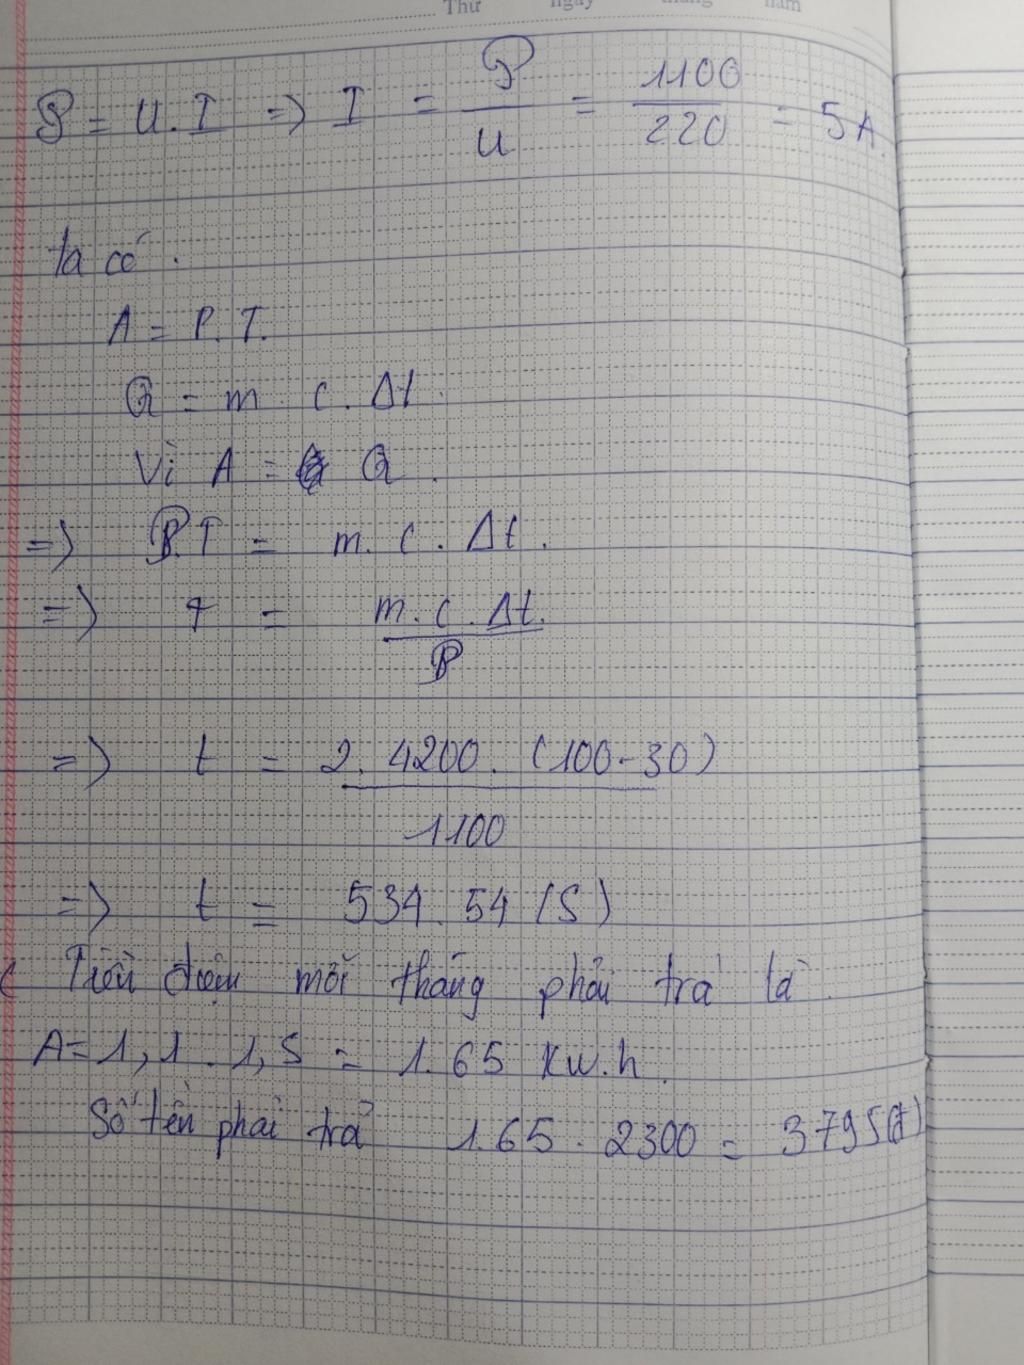 Thứ ngày tháng năm
P = U.I => I = P/U = 1100/220 = 5A.
ta có.
A = P.T.
Q = m c.Δt.
Vì A = Q.
=> P.T = m.c.Δt.
=> T = m.c.Δt./P
=> t = 2.4200.(100-30)/1100
=> t = 534.54 (S)
c Tiền điện mỗi tháng phải trả là.
A = 1,1.1,5 = 1.65 Kw.h.
Số tền phải trả 1.65.2300 = 3795(đ)